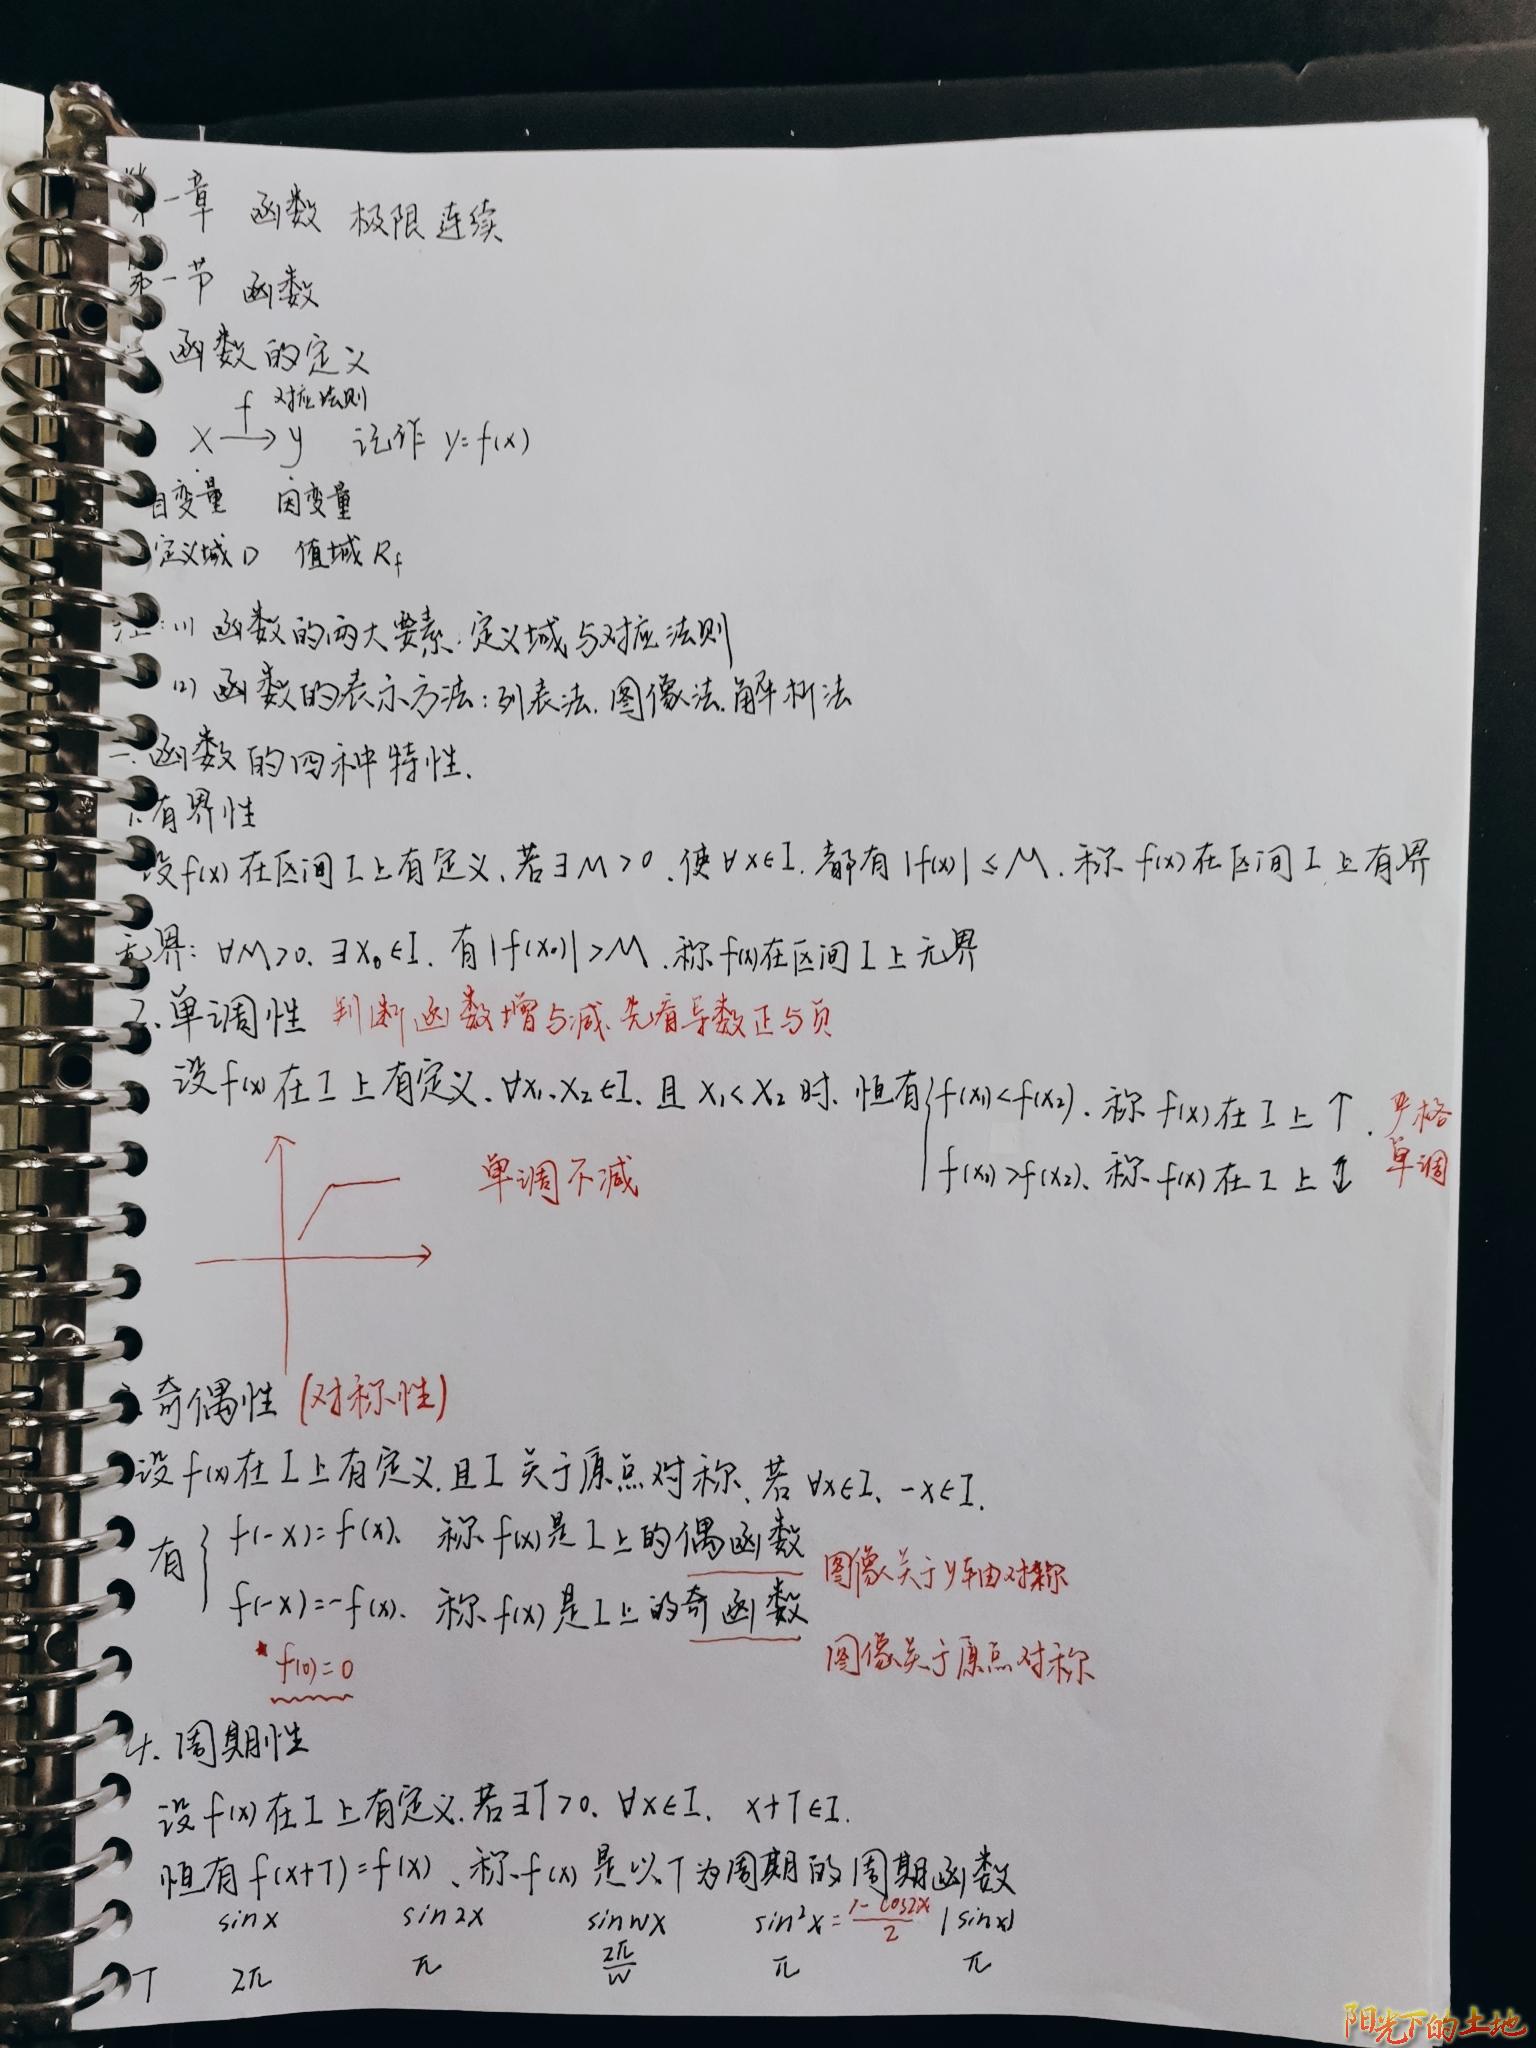 第一章 函数 极限 连续
第一节 函数
函数的定义
f 对应法则
x → y 记作 y=f(x)
自变量 因变量
定义域D 值域Rf
注:(1) 函数的两大要素.定义域与对应法则
(2) 函数的表示方法:列表法.图像法.解析法
函数的四种特性.
1.有界性
设f(x)在区间I上有定义.若∃M>0.使∀x∈I.都有|f(x)|≤M.称f(x)在区间I上有界
无界:∀M>0.∃x₀∈I.有|f(x₀)|>M.称f(x)在区间I上无界
2.单调性 判断函数增与减.先看导数正与负
设f(x)在I上有定义.∀x₁、x₂∈I.且x₁<x₂时.恒有{f(x₁)<f(x₂).称f(x)在I上↑. 严格
f(x₁)>f(x₂).称f(x)在I上↓ 单调
单调不减
3.奇偶性 (对称性)
设f(x)在I上有定义.且I关于原点对称.若∀x∈I.-x∈I.
有{f(-x)=f(x).称f(x)是I上的偶函数 图像关于y轴对称
f(-x)=-f(x).称f(x)是I上的奇函数 图像关于原点对称
★ f(0)=0
4.周期性
设f(x)在I上有定义.若∃T>0.∀x∈I. x+T∈I.
恒有f(x+T)=f(x).称f(x)是以T为周期的周期函数
sinx sin2x sinwx sin²x=(1-cos2x)/2 |sinx|
T 2π π 2π/w π π
阳光下的土地